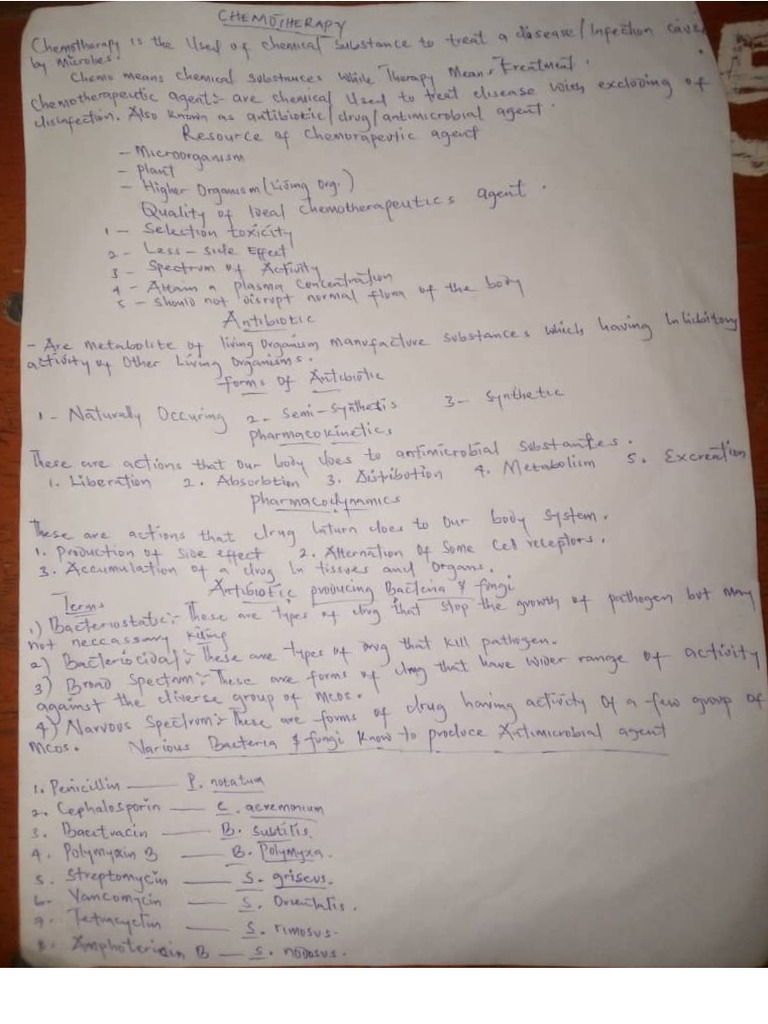 CHEMOTHERAPY
Chemotherapy is the Used of chemical substance to treat a disease/Infection cause
by Microbes.
Chemo means chemical substances while Therapy Means Treatment.
Chemotherapeutic agent:- are chemical Used to treat disease with excluding of
disinfection. Also known as antibiotic/drug/antimicrobial agent.
Resource of Chemorapeutic agent
- Microorganism
- Plant
- Higher Organism (Living Org.)
Quality of Ideal Chemotherapeutics agent.
1- Selection toxicity
2- Less-side Effect
3- Spectrum of Activity
4- Attain a plasma concentration
5- Should not disrupt normal flora of the body
Antibiotic
- Are Metabolite of living organism manufacture substances which having Inhibitory
activity of Other Living Organisms.
forms of Antibiotic
1- Naturally Occuring 2- Semi-Synthesis 3- Synthetic
pharmacokinetics
These are actions that our body does to antimicrobial substances.
1. Liberation 2. Absorbtion 3. Distribution 4. Metabolism 5. Excreation
pharmacodynamics
These are actions that drug Inturn does to our body system.
1. Production of side effect 2. Alternation of some Cel receptors.
3. Accumulation of a drug In tissues and organs.
Antibiotic producing Bacteria & fungi
Terms
1) Bacteriostatic:- These are types of drug that stop the growth of pathogen but may
not neccassary killing
2) Bacteriocidal:- These are types of drug that kill pathogen.
3) Broad Spectrum:- These are forms of drug that have wider range of activity
against the diverse group of MCOs.
4) Narvous Spectrum:- These are forms of drug having activity of a few group of
MCOs. Various Bacteria & fungi know to produce Antimicrobial agent
1. Penicillin — P. notatum
2. Cephalosporin — C. acremonium
3. Bacitracin — B. subtilis.
4. Polymyxin B — B. Polymyxa.
5. Streptomycin — S. griseus.
6. Vancomycin — S. Orientalis.
7. Tetracyclin — S. rimosus.
8. Amphotericin B — S. nodosus.